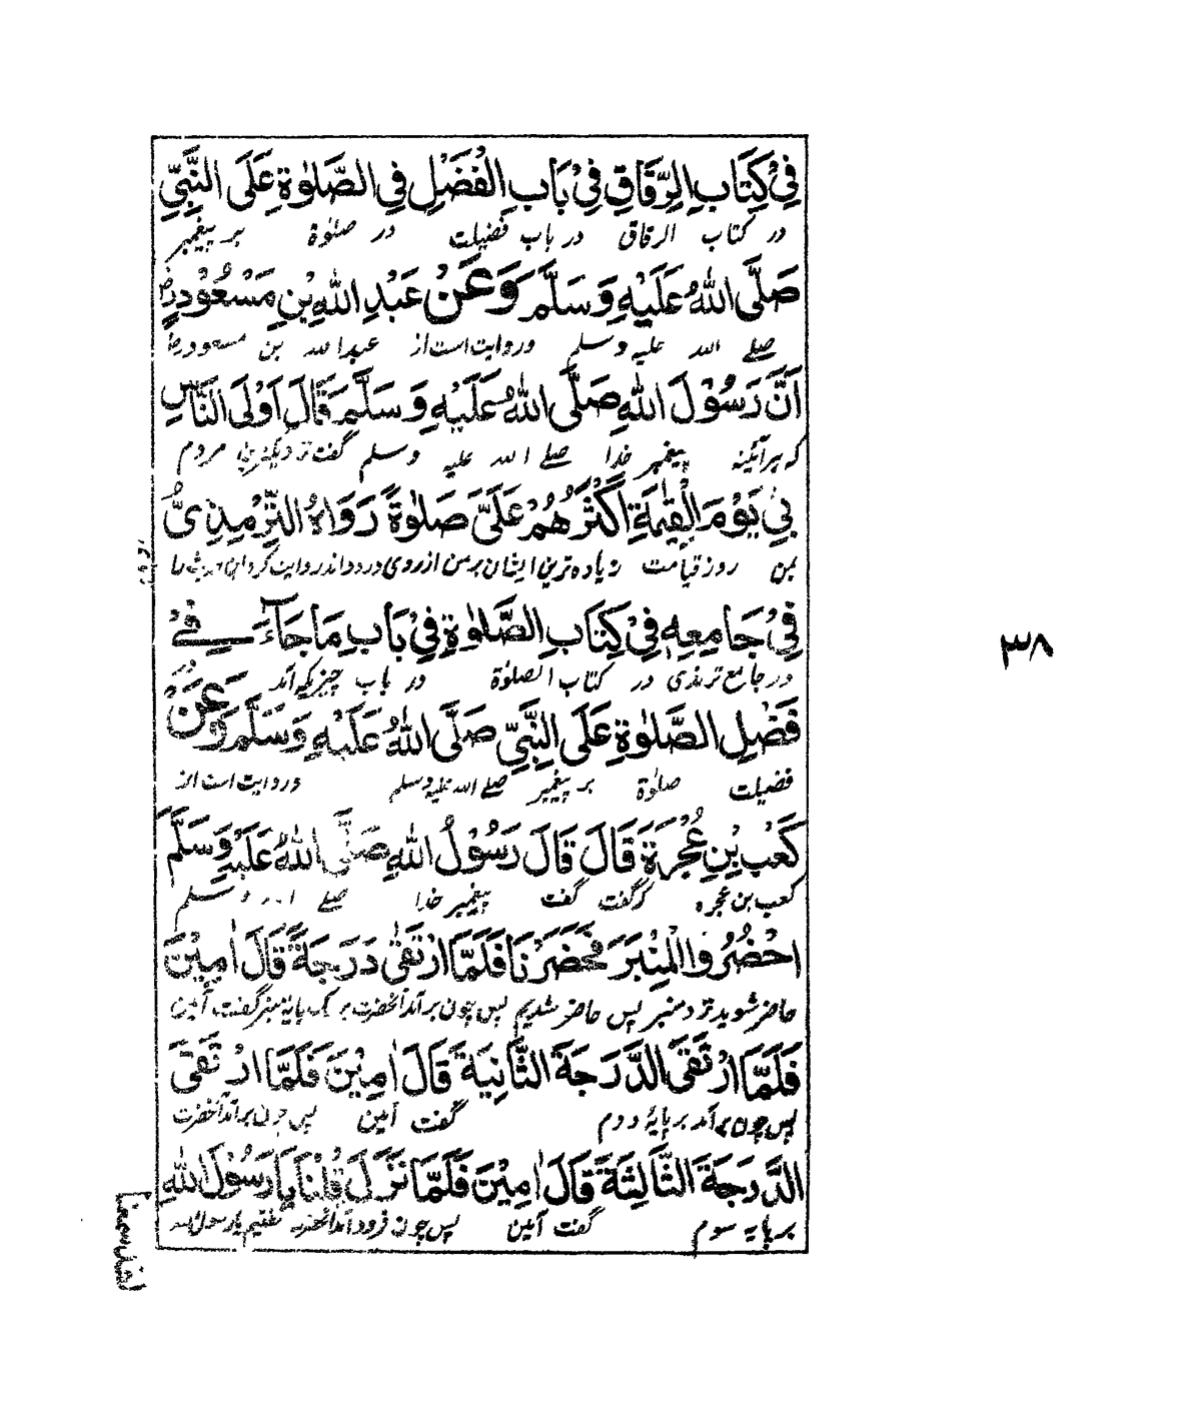 فِیْ کِتَابِ الرِّقَاقِ فِیْ بَابِ الْفَضْلِ فِی الصَّلٰوةِ عَلَی النَّبِیِّ
در کتاب الرقاق در باب فضیلت در صلٰوة بر پیغمبر
صَلَّی اللّٰهُ عَلَیْهِ وَ سَلَّمَ وَ عَنْ عَبْدِ اللّٰهِ بْنِ مَسْعُوْدٍ رض
صلے الله علیه وسلم وروایت است از عبدالله بن مسعود رض
اَنَّ رَسُوْلَ اللّٰهِ صَلَّی اللّٰهُ عَلَیْهِ وَ سَلَّمَ قَالَ اَوْلَی النَّاسِ
که هر آئینه پیغمبر خدا صلے الله علیه وسلم گفت نزدیکترین مردم
بِیْ یَوْمَ الْقِیٰمَةِ اَکْثَرُهُمْ عَلَیَّ صَلٰوةً رَوَاهُ التِّرْمِذِیُّ
بمن روز قیامت زیاده ترین ایشان بر من از روی درود اند روایت کرد این حدیث را
فِیْ جَامِعِهٖ فِیْ کِتَابِ الصَّلٰوةِ فِیْ بَابِ مَا جَآءَ فِیْ
در جامع ترمذی در کتاب الصلوٰة در باب چیزیکه آمد در
فَضْلِ الصَّلٰوةِ عَلَی النَّبِیِّ صَلَّی اللّٰهُ عَلَیْهِ وَسَلَّمَ وَعَنْ
فضیلت صلٰوة بر پیغمبر صلے الله علیه وسلم وروایت است از
کَعْبِ بْنِ عُجْرَةَ قَالَ قَالَ رَسُوْلُ اللّٰهِ صَلَّی اللّٰهُ عَلَیْهِ وَسَلَّمَ
کعب بن عجره که گفت گفت پیغمبر خدا صلے وسلم
اُحْضُرُوا الْمِنْبَرَ فَحَضَرْنَا فَلَمَّا ارْتَقٰی دَرَجَةً قَالَ اٰمِیْنَ
حاضر شوید نزد منبر پس حاضر شدیم پس چون برآمد آنحضرت بر یک پایهٔ منبر گفت آمین
فَلَمَّا ارْتَقَی الدَّرَجَةَ الثَّانِیَةَ قَالَ اٰمِیْنَ فَلَمَّا ارْتَقَی
پس چون برآمد بر پایهٔ دوم گفت آمین پس چون برآمد آنحضرت
الدَّرَجَةَ الثَّالِثَةَ قَالَ اٰمِیْنَ فَلَمَّا نَزَلَ قُلْنَا یَا رَسُوْلَ اللّٰهِ
بر پایه سوم گفت آمین پس چون فرود آمد آنحضرت گفتیم یا رسول الله
لقد سمعنا
۳۸